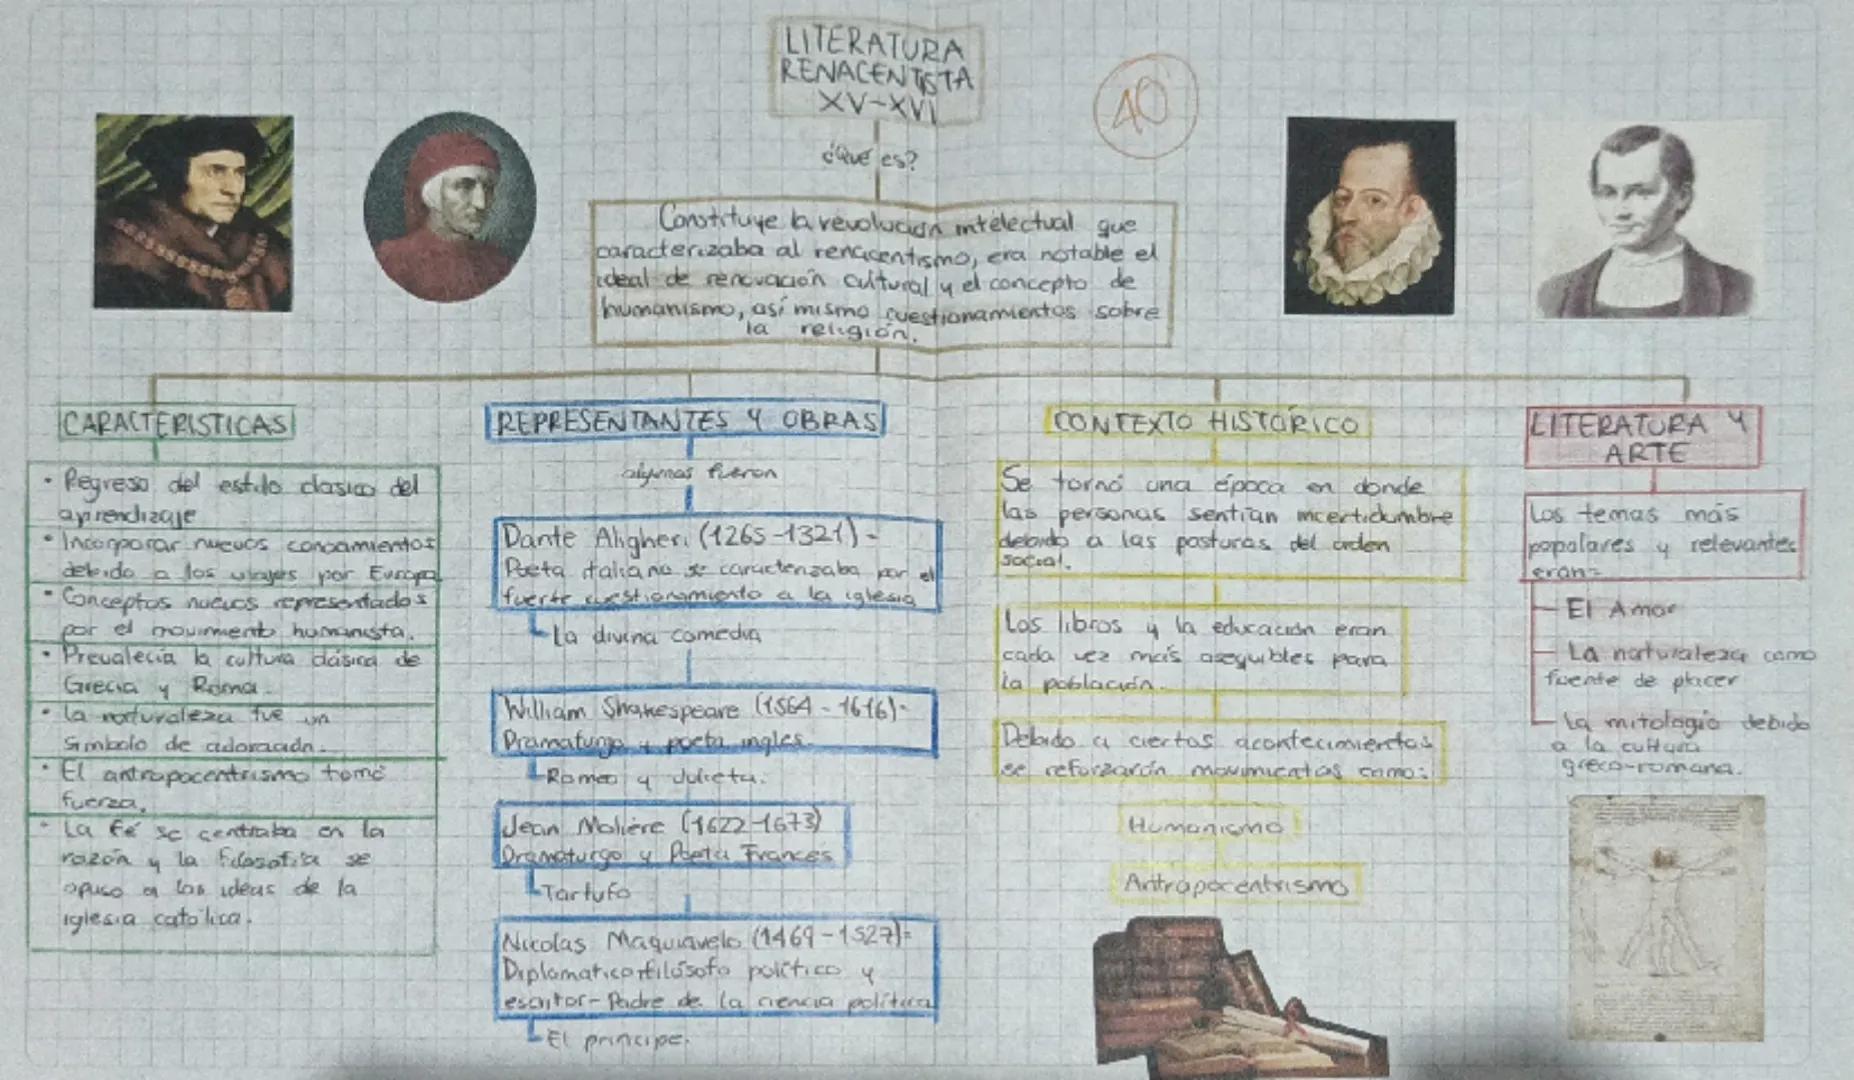 LITERATURA
RENACENTISTA
XV-XVI
40
¿Qué es?
Constituye la revolución intelectual que
caracterizaba al renacentismo, era notable el
ideal de renovación cultural y el concepto de
humanismo, así mismo cuestionamientos sobre
la religión.
CARACTERISTICAS
• Regreso del estilo clasico del
aprendizaje
• Incorporar nuevos conocamientos
debido a los viajes por Europa
• Conceptos nuevos representados
por el movimiento humanista.
• Prevalecia la cultura clásica de
Grecia y Roma.
• La naturaleza fue un
simbolo de adoración.
• El antropocentrismo tomó
fuerza.
• La fé se centraba en la
razón y la filosofía se
opuso a las ideas de la
iglesia católica.
REPRESENTANTES Y OBRAS
algunos fueron
Dante Aligheri (1265-1321)-
Poeta italiano se caracterizaba por el
fuerte cuestionamiento a la iglesia
La divina comedia
William Shakespeare (1564-1616)-
Dramaturgo y poeta ingles.
Romeo y Julieta.
Jean Molière (1622-1673)
Dramaturgo y Poeta Frances
Tartufo
Nicolas Maquiavelo (1469-1527)=
Diplomatico, filósofo político y
escritor- Padre de la ciencia política
El principe.
CONTEXTO HISTÓRICO
Se tornó una época en donde
las personas sentían incertidumbre
debido a las posturas del orden
social.
Los libros y la educación eran
cada vez más asequibles para
la población.
Debido a ciertos acontecimientos
se reforzarón movimientos como:
Humanismo
Antropocentrismo
LITERATURA Y
ARTE
Los temas más
populares y relevantes
eran=
El Amor
La naturaleza como
fuente de placer
La mitología debido
a la cultura
greco-romana.